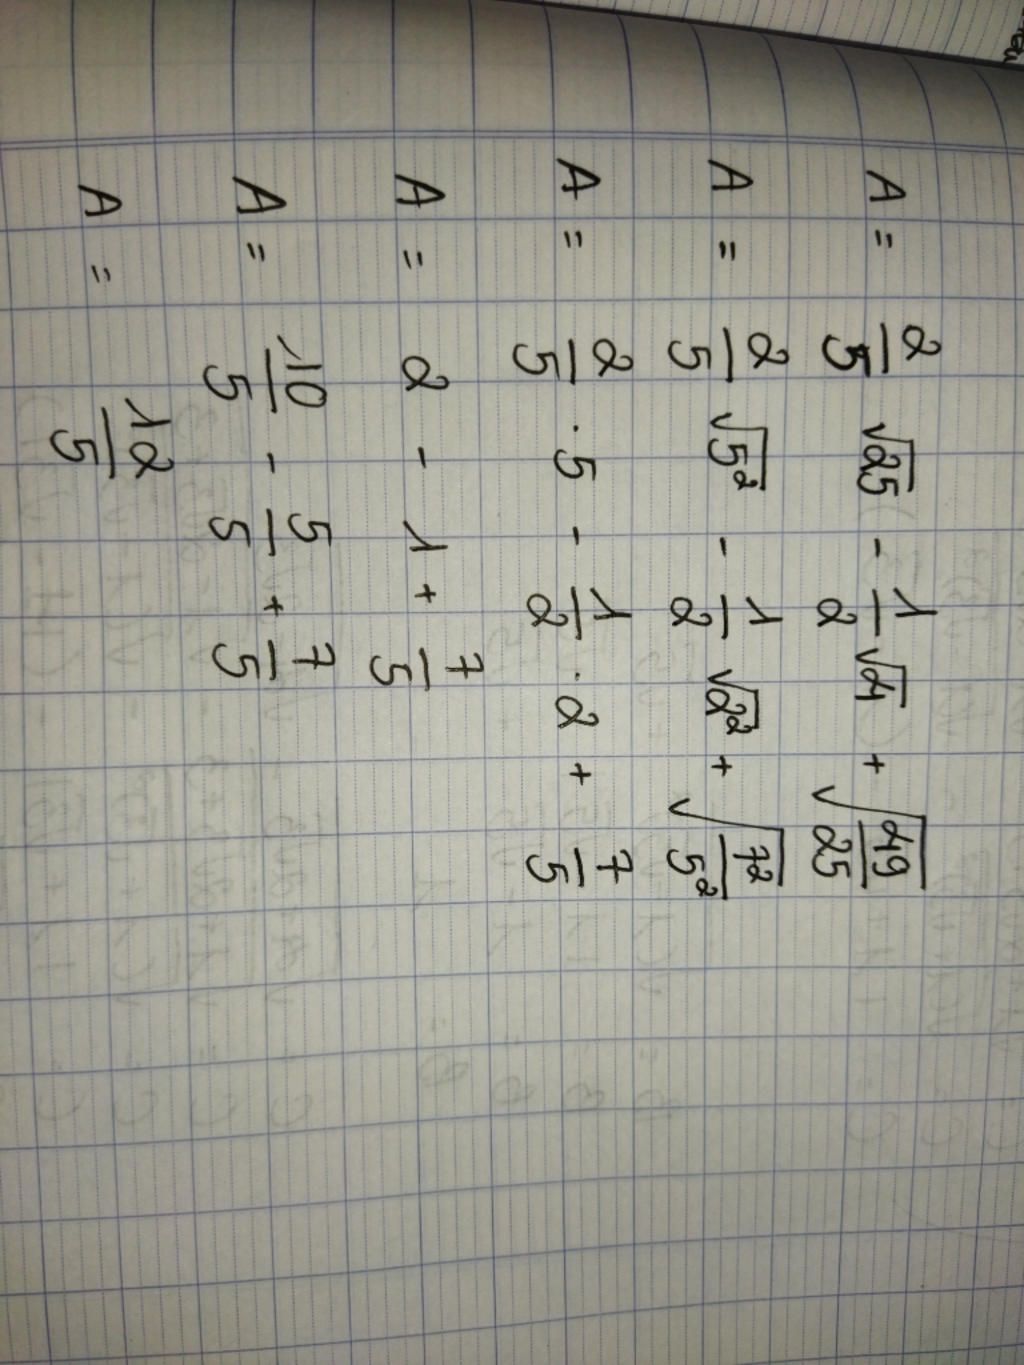 A = 2/5 √25 - 1/2 √4 + √(49/25)
A = 2/5 √5² - 1/2 √2² + √(7²/5²)
A = 2/5 · 5 - 1/2 · 2 + 7/5
A = 2 - 1 + 7/5
A = 10/5 - 5/5 + 7/5
A = 12/5